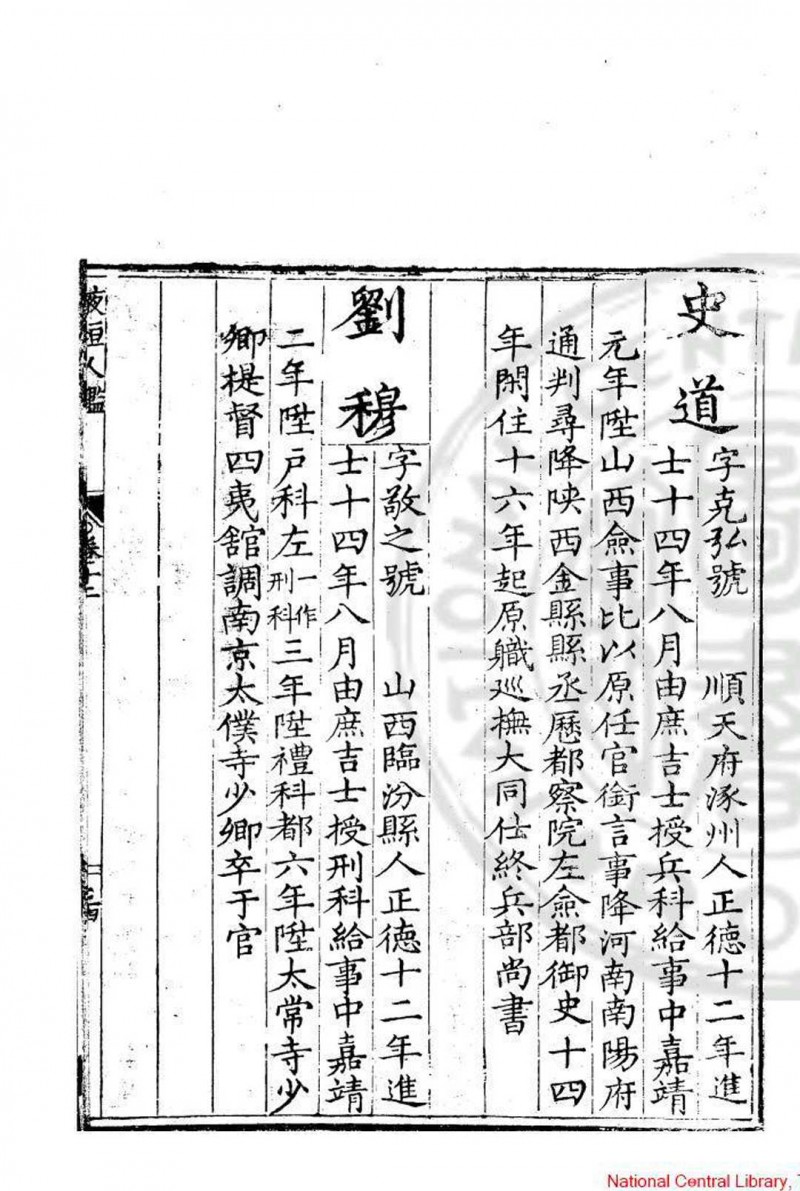 史道
字克弘號 順天府涿州人正德十二年進
士十四年八月由庶吉士授兵科給事中嘉靖
元年陞山西僉事比以原任官銜言事降河南南陽府
通判尋降陜西金縣縣丞歷都察院左僉都御史十四
年閑住十六年起原職巡撫大同仕終兵部尚書
劉穆
字敬之號 山西臨汾縣人正德十二年進
士十四年八月由庶吉士授刑科給事中嘉靖
二年陞戶科左一作刑科三年陞禮科都六年陞太常寺少
卿提督四夷舘調南京太僕寺少卿卒于官
掖垣人鑑
卷十二
National Central Library,